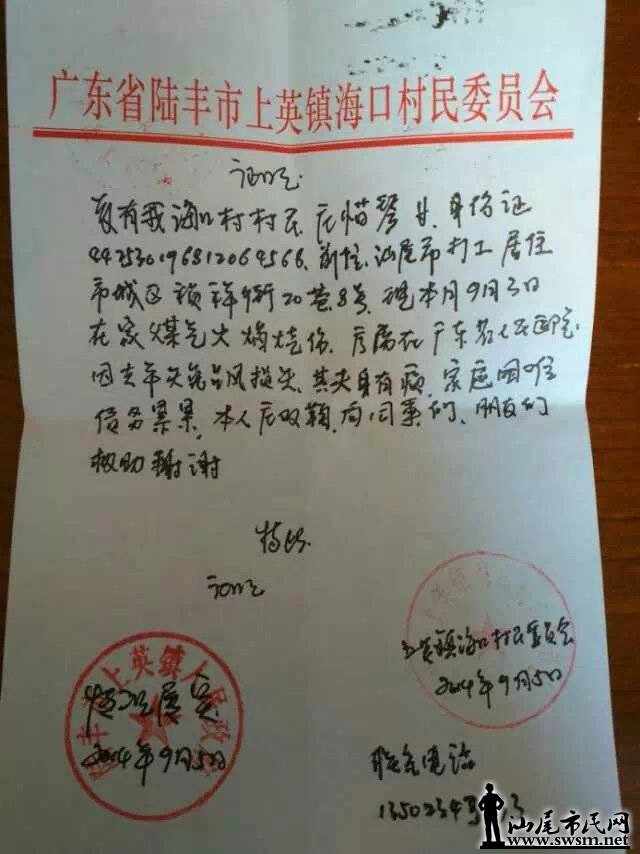 广东省陆丰市上英镇海口村民委员会
证明
兹有我海口村村民庄惜琴女,身份证
442530196812064566,前往汕尾市打工居住
市城区 祥街20巷8号,现本月9月3日
在家煤气火焰烧伤,在广东省人民医院
因去年天兔台风损失,其夫身有病,家庭困难
债务累累,本人庄双鞠,向同事们、朋友们
救助谢谢
特此
证明
上英镇海口村民委员会
2014年9月5日
上英镇人民政府
情况属实
2014年9月5日
联系电话
汕尾市民网
www.swsm.net